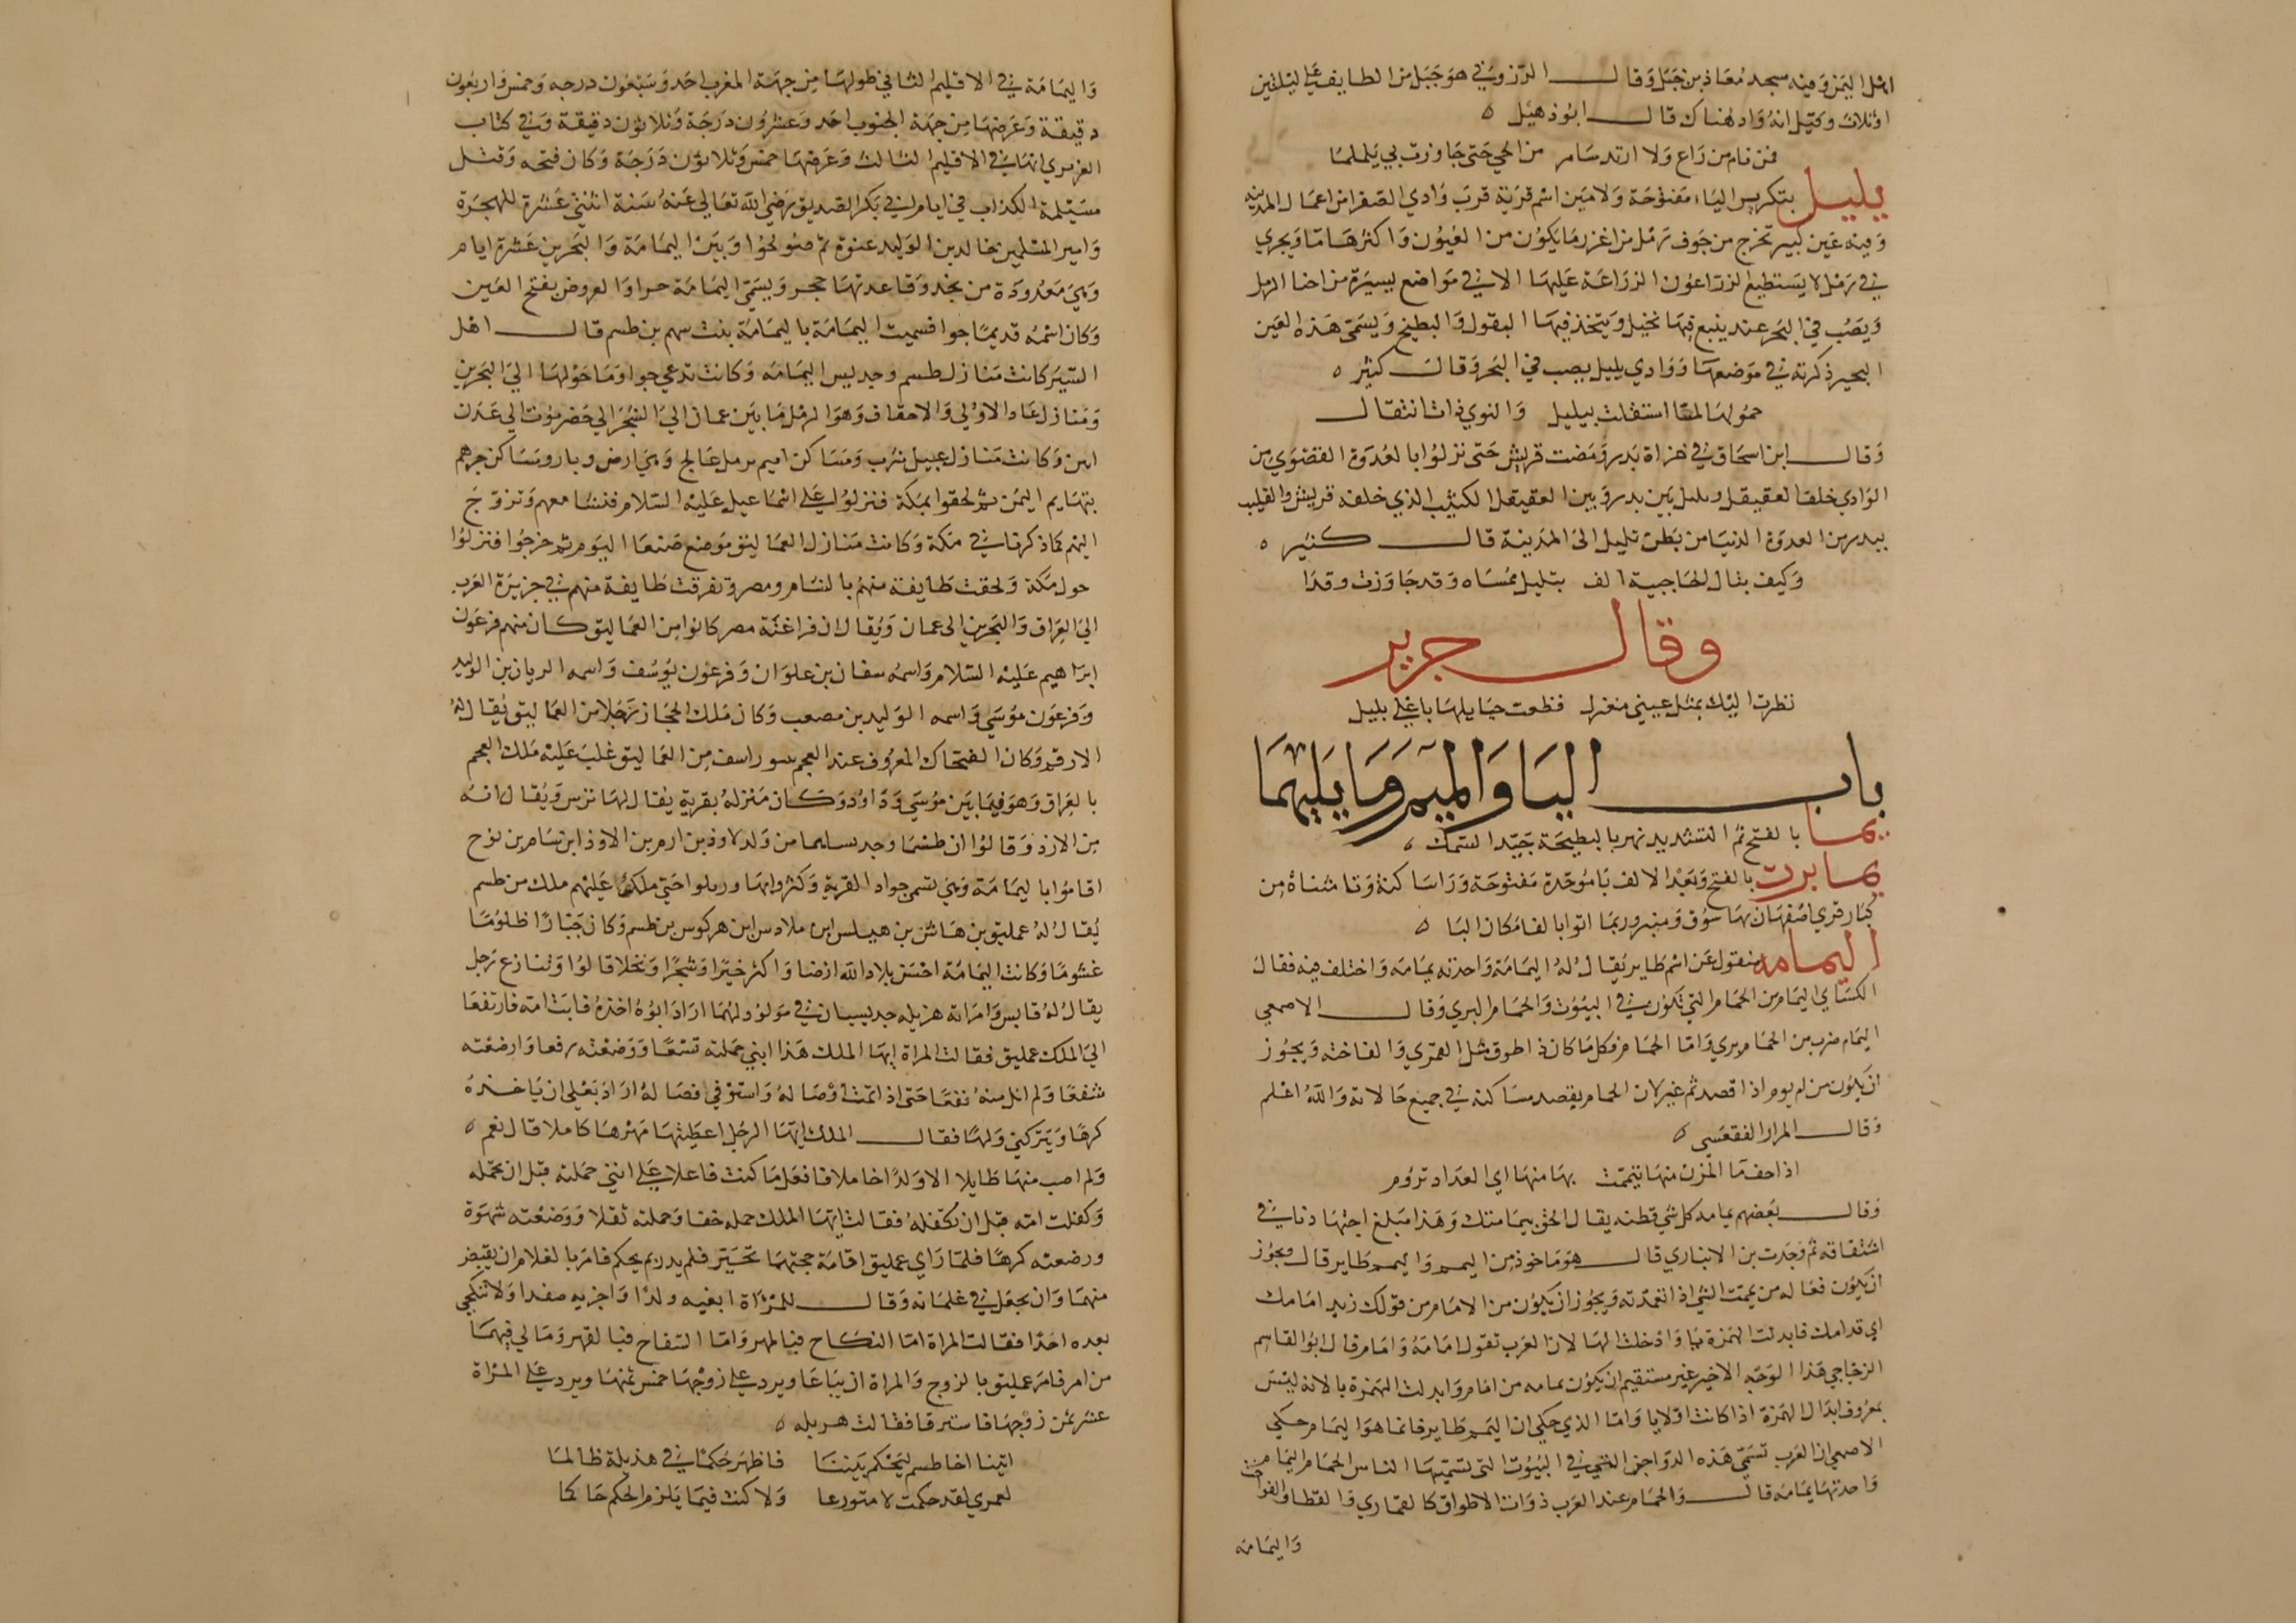 اهل اليمن وفيه مسجد معاذ بن جبل وقال المرزوقي هو جبل من الطايف على ليلتين
او ثلاث وقيل انه واد هناك قال ابو دهبل ه
فمن نام من راع ولا ارتد سامر من الحي حتى جاوزت بي يلملما
يليل بتكرير الياء مفتوحة ولامين اسم قرية قرب وادي الصفرا من اعمال المدينه
وفيه عين كبير تخرج من جوف رمل من اغزر ما يكون من العيون واكثرها ما ويجري
في رمل لا يستطيع الزراعون الزراعة عليها الا في مواضع يسيرة من احنا الرمل
ويصب في البحر عند ينبع فيها نخيل ويتخذ فيها البقول والبطيخ ويسمى هذه العين
البحير ذكرته في موضعها ووادي يليل يصب في البحر وقال كثير ه
حمولها لما استقلت بيليل والنوي ذات انتقال
وقال ابن اسحاق في غزاة بدر ومضت قريش حتى نزلوا بالعدوة القضوي من
الوادي خلف العقيقل و يليل بين بدر وبين العقيقل الكثيب الذي خلفه قريش والقليب
ببدر من العدوة الدنيا من بطن تليل الى المدينة قال كثير ه
وكيف ينال الحاجبية الف بيليل ممساه وقد جاوزت وقدا
وقال جرير
نظرت اليك بمثل عيني مغزل قطعت حبايلها باعلى يليل
باب اليا والميم وما يليهما
يما بالفتح ثم التشديد نهر بالبطيحة جيد السمك ه
يمابرت بالفتح وبعد الالف با موحدة مفتوحة ورا ساكنة وتا مثناة من
كبار قري اصفهان بها سوق ومنبر وربما اتوا بالفا مكان البا ه
اليمامه منقول عن اسم طاير يقال له اليمامة واحدته يمامه واختلف فيه فقال
الكساي اليمام من الحمام التي تكون في البيوت والحمام البري وقال الاصمعي
اليمام ضرب من الحمام بري واما الحمام فكل ما كان ذا طوق مثل القمري والفاخته ويجوز
ان يكون من ام يوم اذا قصد ثم غير لان الحمام يقصد مساكنه في جميع حالاته والله اعلم
وقال المرار الفقعسي ه
اذا خف ما المزن منها تيممت بها منها اي العداد تروم
وقال بعضهم يمامد كل شي قطنه يقال الحق بيمامتك وهذا مبلغ اجتهادنا في
اشتقاقه ثم وجدت بن الانباري قال هو ماخوذ من اليمم واليمم طاير قال ويجوز
ان يكون فعاله من يممت الشي اذا تعمدته ويجوز ان يكون من الامام من قولك زيد امامك
اي قدامك فابدلت الهمزة يا وادخلت الها لان العرب تقول امامة وامام قال ابو القاسم
الزجاجي هذا الوجه الاخير غير مستقيم ان يكون يمامه من امام وابدلت الهمزة يا لانه ليس
بمعروف ابدال الهمزة اذا كانت اولا يا واما الذي حكي ان اليمم طاير فانما هو اليمام حكي
الاصمعي ان العرب تسمى هذه الدواجن التي في البيوت التي تسميها الناس الحمام اليمام
واحدتها يمامه قال والحمام عند العرب ذوات الاطواق كالقماري والقطا والفواخت
واليمامه
واليمامة في الاقليم الثاني طولها من جهة المغرب احد وسبعون درجه وخمس واربعون
دقيقة وعرضها من جهة الجنوب احد وعشرون درجة وثلاثون دقيقة وفي كتاب
العزيزي انها في الاقليم الثالث وعرضها خمس وثلاثون درجة وكان فتحه وقتل
مسيلمة الكذاب في ايام ابي بكر الصديق رضي الله تعالى عنه سنة اثنتي عشرة للهجرة
وامير المسلمين خالد بن الوليد عنوة ثم صولحوا وبين اليمامة والبحرين عشرة ايام
وهي معدودة من نجد وقاعدتها حجر ويسمى اليمامة جوا والعروض بفتح العين
وكان اسمه قديما جوا فسميت اليمامة باليمامة بنت سهم بن طسم قال اهل
السير كانت منازل طسم وجديس اليمامه وكانت تدعي جوا وما حولها الى البحرين
ومنازل عاد الاولي والاحقاف وهو الرمل ما بين عمان الي الشجر الي حضرموت الي عدن
ابين وكانت منازل عبيل يثرب ومساكن اميم برمل عالج وهي ارض وبار ومساكن جرهم
بتهايم اليمن ثم لحقوا بمكة فنزلوا على اسماعيل عليه السلام فنشا معهم وتزوج
اليهم كما ذكرنا في مكة وكانت منازل العماليق موضع صنعا اليوم ثم خرجوا فنزلوا
حول مكة ولحقت طايفة منهم بالشام ومصر وتفرقت طايفة منهم في جزيرة العرب
الي العراق والبحرين الى عمان ويقال ان فراعنة مصر كانوا من العماليق كان منهم فرعون
ابراهيم عليه السلام واسمه سنان بن علوان وفرعون يوسف واسمه الريان بن الوليد
وفرعون موسي واسمه الوليد بن مصعب وكان ملك الحجاز رجلا من العماليق يقال له
الارقم وكان الضحاك المعروف عند العجم بيوراسف من العماليق غلب عليه ملك العجم
بالعراق وهو فيما بين موسي وداود وكان منزله بقرية يقال لها ترس ويقال انه
من الازد وقالوا ان طسما وجديسا هما من ولد لاوذ بن ارم بن لاوذ ابن سام بن نوح
اقاموا باليمامة وهي تسمي جوا والقرية وكثروا بها وربلوا حتى ملك عليهم ملك من طسم
يقال له عمليق بن هباش بن هيلس ابن ملادس ابن هركوس بن طسم وكان جبارا ظلوما
غشوما وكانت اليمامة احسن بلاد الله ارضا واكثر خيرا وشجرا ونخلا قالوا وتنازع رجل
يقال له قابس وامراته هزيله جديسيان في مولود لهما اراد ابوه اخذه فابت امه فارتفعا
الي الملك عمليق فقالت المراة ايها الملك هذا ابني حملته تسعا ووضعته رفعا وارضعته
شفعا ولم انل منه نفعا حتى اذا تمت اوصاله واستوفى فصاله اراد بعلي ان ياخذه
كرها ويتركني ولها فقال الملك ايها الرجل اعطيتها مهرها كاملا قال نعم ه
ولم اصب منها طايلا الا ولدا خاملا فافعل ما كنت فاعلا على انني حملته قبل ان تحمله
وكفلت امه قبل ان تكفله فقالت ايها الملك حمله خفا وحملته ثقلا ووضعه شهوة
ووضعته كرها فلما راي عمليق اقامة حجتهما تحير فلم يدر بم يحكم فامر بالغلام ان يقبض
منهما وان يجعل في غلمانه وقال للمراة ابغيه ولدا واجزيه صفدا ولا تنكحي
بعده احدا فقالت المراة اما النكاح فبالمهر واما السفاح فبالقهر وما لي فيهما
من امر فامر عمليق بالزوج والمراة ان يباعا ويرد على زوجها خمس ثمنها ويرد على المراة
عشر ثمن زوجها فاسترقا فقالت هزيله ه
اتينا اخا طسم ليحكم بيننا فاظهر حكما في هذيلة ظالما
لعمري لقد حكمت لا متورعا ولا كنت فيما يلزم الحكم حاكما